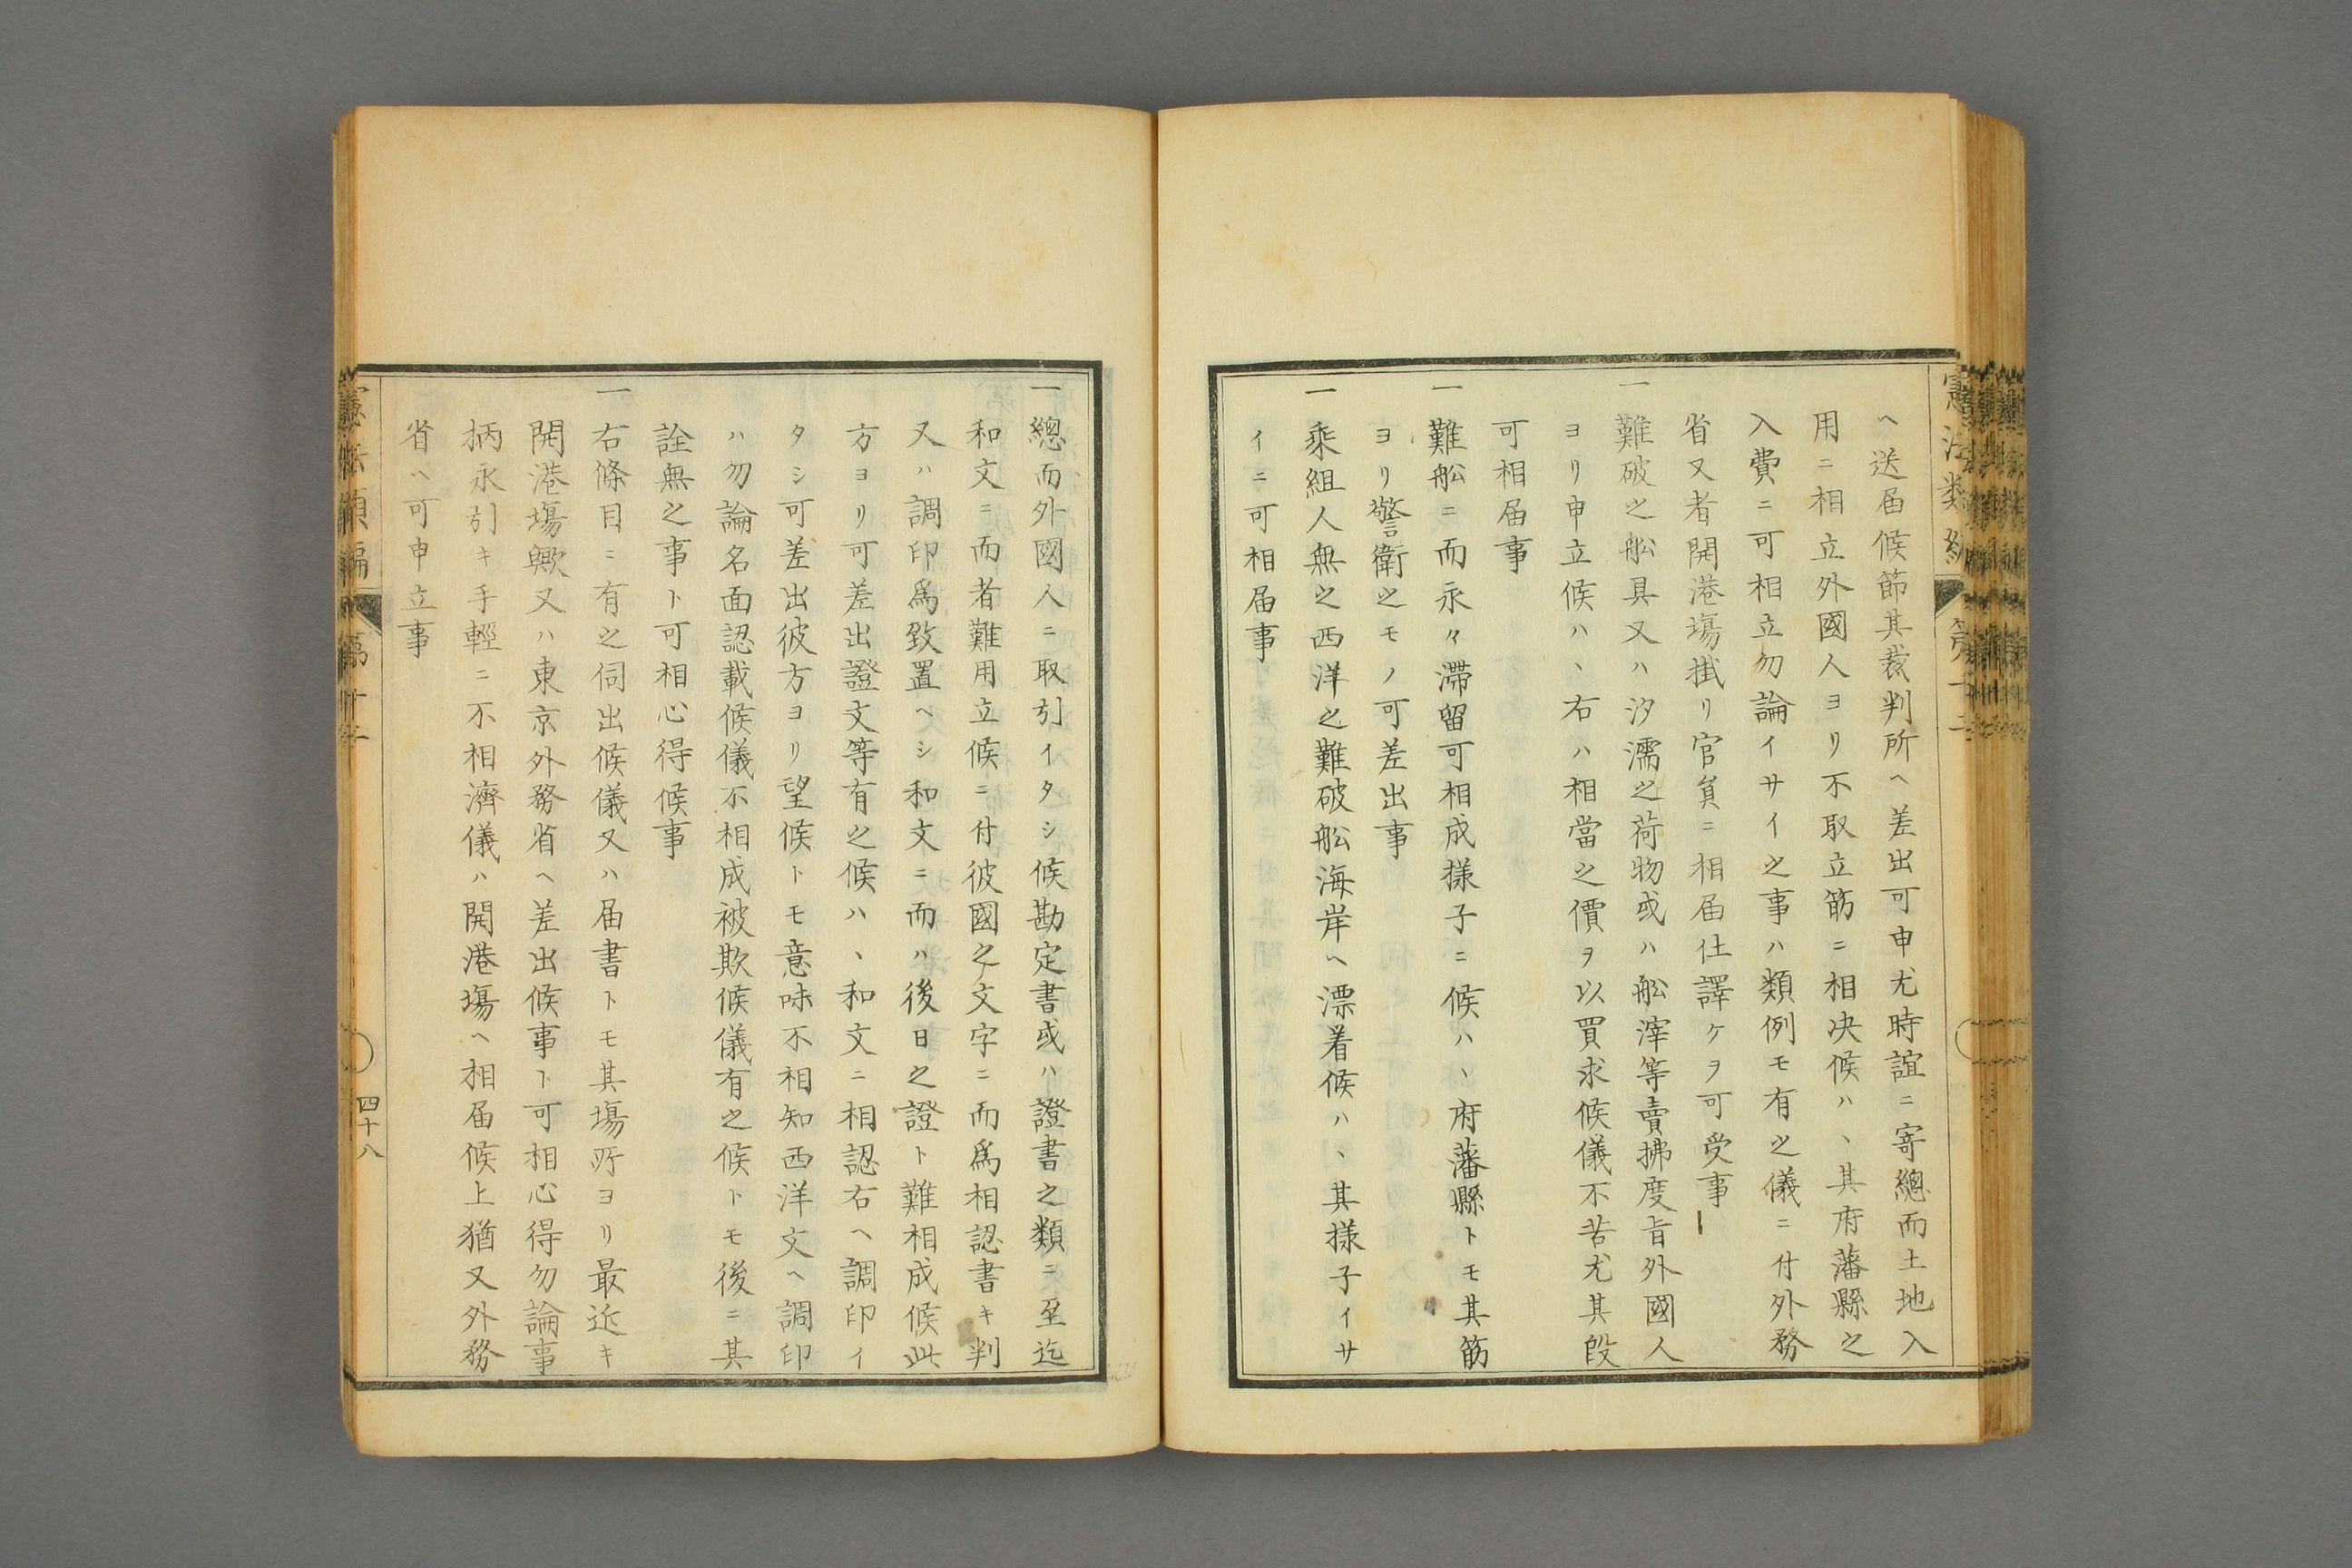 ヘ送届候節其裁判所ヘ差出可申尤時誼ニ寄總而土地入
用ニ相立外國人ヨリ不取立筋ニ相决候ハヽ其府藩縣之
入費ニ可相立勿論イサイ之事ハ類例モ有之儀ニ付外務
省又者開港塲掛リ官貟ニ相届仕譯ケヲ可受事
一難破之舩具又ハ汐濡之荷物或ハ舩滓等賣拂度旨外國人
ヨリ申立候ハヽ右ハ相當之價ヲ以買求候儀不苦尤其段
可相届事
一難舩ニ而永々滯留可相成樣子ニ候ハヽ府藩縣トモ其筋
ヨリ警衛之モノ可差出事
一乘組人無之西洋之難破舩海岸ヘ漂着候ハヽ其様子イサ
イニ可相届事
一總而外國人ニ取引イタシ候勘定書或ハ證書之類ニ至迄
和文ニ而者難用立候ニ付彼國之文字ニ而爲相認書キ判
又ハ調印爲致置ヘシ和文ニ而ハ後日之證ト難相成候此
方ヨリ可差出證文等有之候ハヽ和文ニ相認右ヘ調印イ
タシ可差出彼方ヨリ望候トモ意味不相知西洋文ヘ調印
ハ勿論名面認載候儀不相成被欺候儀有之候トモ後ニ其
詮無之事ト可相心得候事
一右條目ニ有之伺出候儀又ハ届書トモ其塲所ヨリ最近キ
開港塲歟又ハ東京外務省ヘ差出候事ト可相心得勿論事
柄永引キ手輕ニ不相濟儀ハ開港塲ヘ相届候上猶又外務
省ヘ可申立事
憲法類編
四十八